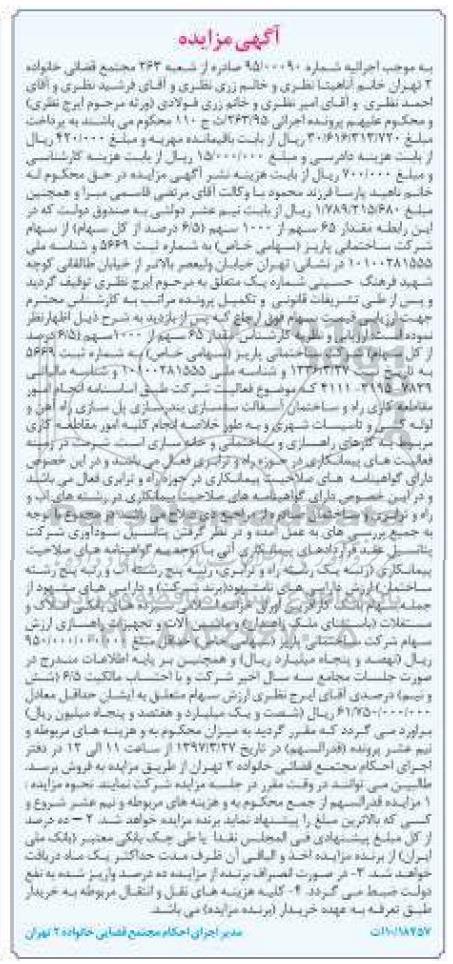 آگهی مزایده
به موجب اجرائیه شماره ۹۵/۰۰۰۹۰ صادره از شعبه ۲۶۳ مجتمع قضائی خانواده
۲ تهران خانم آناهیتا نظری و خانم زری نظری و آقای فرشید نظری و آقای
احمد نظری و آقای امیر نظری و خانم زری فولادی (ورثه مرحوم ایرج نظری)
و محکوم علیهم پرونده اجرائی ۲۶۳/۹۵/ث ج ۱۱۰ محکوم می باشند به پرداخت
مبلغ ۳۰/۶۱۶/۳۱۳/۷۲۰ ریال از بابت باقیمانده مهریه و مبلغ ۴۲۰/۰۰۰ ریال
از بابت هزینه دادرسی و مبلغ ۱۵/۰۰۰/۰۰۰ ریال از بابت هزینه کارشناسی
و مبلغ ۷۰۰/۰۰۰ ریال از بابت هزینه نشر آگهی مزایده در حق محکوم له
خانم ناهید پارسا فرزند محمود با وکالت آقای مرتضی قاسمی مبرا و همچنین
مبلغ ۱/۷۸۹/۲۱۵/۶۸۰ ریال از بابت نیم عشر دولتی به صندوق دولت که در
این رابطه مقدار ۶۵ سهم از ۱۰۰۰ سهم (۶/۵ درصد از کل سهام) از سهام
شرکت ساختمانی پاریز (سهامی خاص) به شماره ثبت ۵۶۶۹ و شناسه ملی
۱۰۱۰۰۲۸۱۵۵۵ در نشانی: تهران خیابان ولیعصر بالاتر از خیابان طالقانی کوچه
شهید فرهنگ حسینی شماره یک متعلق به مرحوم ایرج نظری توقیف گردید
و پس از طی تشریفات قانونی و تکمیل پرونده مراتب به کارشناس محترم
جهت ارزیابی قیمت سهام فوق ارجاع که پس از بازدید به شرح ذیل اظهارنظر
نموده است: ارزیابی و نظریه کارشناس مقدار ۶۵ سهم از ۱۰۰۰ سهم (۶/۵ درصد
از کل سهام) شرکت ساختمانی پاریز (سهامی خاص) به شماره ثبت ۵۶۶۹
به تاریخ ثبت ۱۳۳۶/۳/۲۷ و شناسه ملی ۱۰۱۰۰۲۸۱۵۵۵ و شناسه مالیاتی
۴۱۱۱-۳۱۹۵-۷۸۳۹ که موضوع فعالیت شرکت طبق اساسنامه انجام امور
مقاطعه کاری راه و ساختمان آسفالت سدسازی بندرسازی پل سازی راه آهن و
لوله کشی و تاسیسات شهری و به طور خلاصه انجام کلیه امور مقاطعه کاری
مربوط به کارهای راهسازی و ساختمانی و خانه سازی است. شرکت در زمینه
فعالیت های پیمانکاری در حوزه راه و ترابری فعال می باشد و در این خصوص
دارای گواهینامه های صلاحیت پیمانکاری در حوزه راه و ترابری فعال می باشد
و در این خصوص دارای گواهینامه های صلاحیت پیمانکاری در رشته های آب و
راه و ترابری و ساختمان صادره از مراجع ذی صلاح می باشد. در مجموع با توجه
به جمیع بررسی های به عمل آمده و در نظر گرفتن پتانسیل سودآوری شرکت
پتانسیل عقد قراردادهای پیمانکاری آتی با توجه به گواهینامه های صلاحیت
پیمانکاری (رتبه یک رشته راه و ترابری، رتبه پنج رشته آب و رتبه پنج رشته
ساختمان) ارزش دارایی های نامشهود (برند شرکت) و دارایی های مشهود از
جمله سهام بانک کارآفرین اوراق خزانه اسلامی سپرده های بانکی املاک و
مستغلات (باستثنای ملک زاهدان) و ماشین آلات و تجهیزات راهسازی ارزش
سهام شرکت ساختمانی پاریز (سهامی خاص) حداقل مبلغ ۹۵۰/۰۰۰/۰۰۰/۰۰۰
ریال (نهصد و پنجاه میلیارد ریال) و همچنین بر پایه اطلاعات مندرج در
صورت جلسات مجامع سه سال اخیر شرکت و با احتساب مالکیت ۶/۵ (شش
و نیم) درصدی آقای ایرج نظری ارزش سهام متعلق به ایشان حداقل معادل
۶۱/۷۵۰/۰۰۰/۰۰۰ ریال (شصت و یک میلیارد و هفتصد و پنجاه میلیون ریال)
برآورد می گردد که مقرر گردید به میزان محکوم به و هزینه های مربوطه و
نیم عشر پرونده (قدرالسهم) در تاریخ ۱۳۹۷/۳/۲۷ از ساعت ۱۱ الی ۱۲ در دفتر
اجرای احکام مجتمع قضائی خانواده ۲ تهران از طریق مزایده به فروش برسد.
طالبین می توانند در وقت مقرر در جلسه مزایده شرکت نمایند. نحوه مزایده :
۱ مزایده قدرالسهم از جمع محکوم به و هزینه های مربوطه و نیم عشر شروع و
کسی که بالاترین مبلغ را پیشنهاد نماید برنده مزایده خواهد شد. ۲ – ده درصد
از کل مبلغ پیشنهادی فی المجلس نقدا یا طی چک بانکی معتبر (بانک ملی
ایران) از برنده مزایده اخذ و الباقی آن ظرف مدت حداکثر یک ماه دریافت
خواهد شد. ۳- در صورت انصراف برنده از مزایده ده درصد واریز شده به نفع
دولت ضبط می گردد. ۴- کلیه هزینه های نقل و انتقال مربوطه به خریدار
طبق تعرفه به عهده خریدار (برنده مزایده) می باشد.
۱۱۰/۱۸۴۵۷/ث مدیر اجرای احکام مجتمع قضایی خانواده ۲ تهران